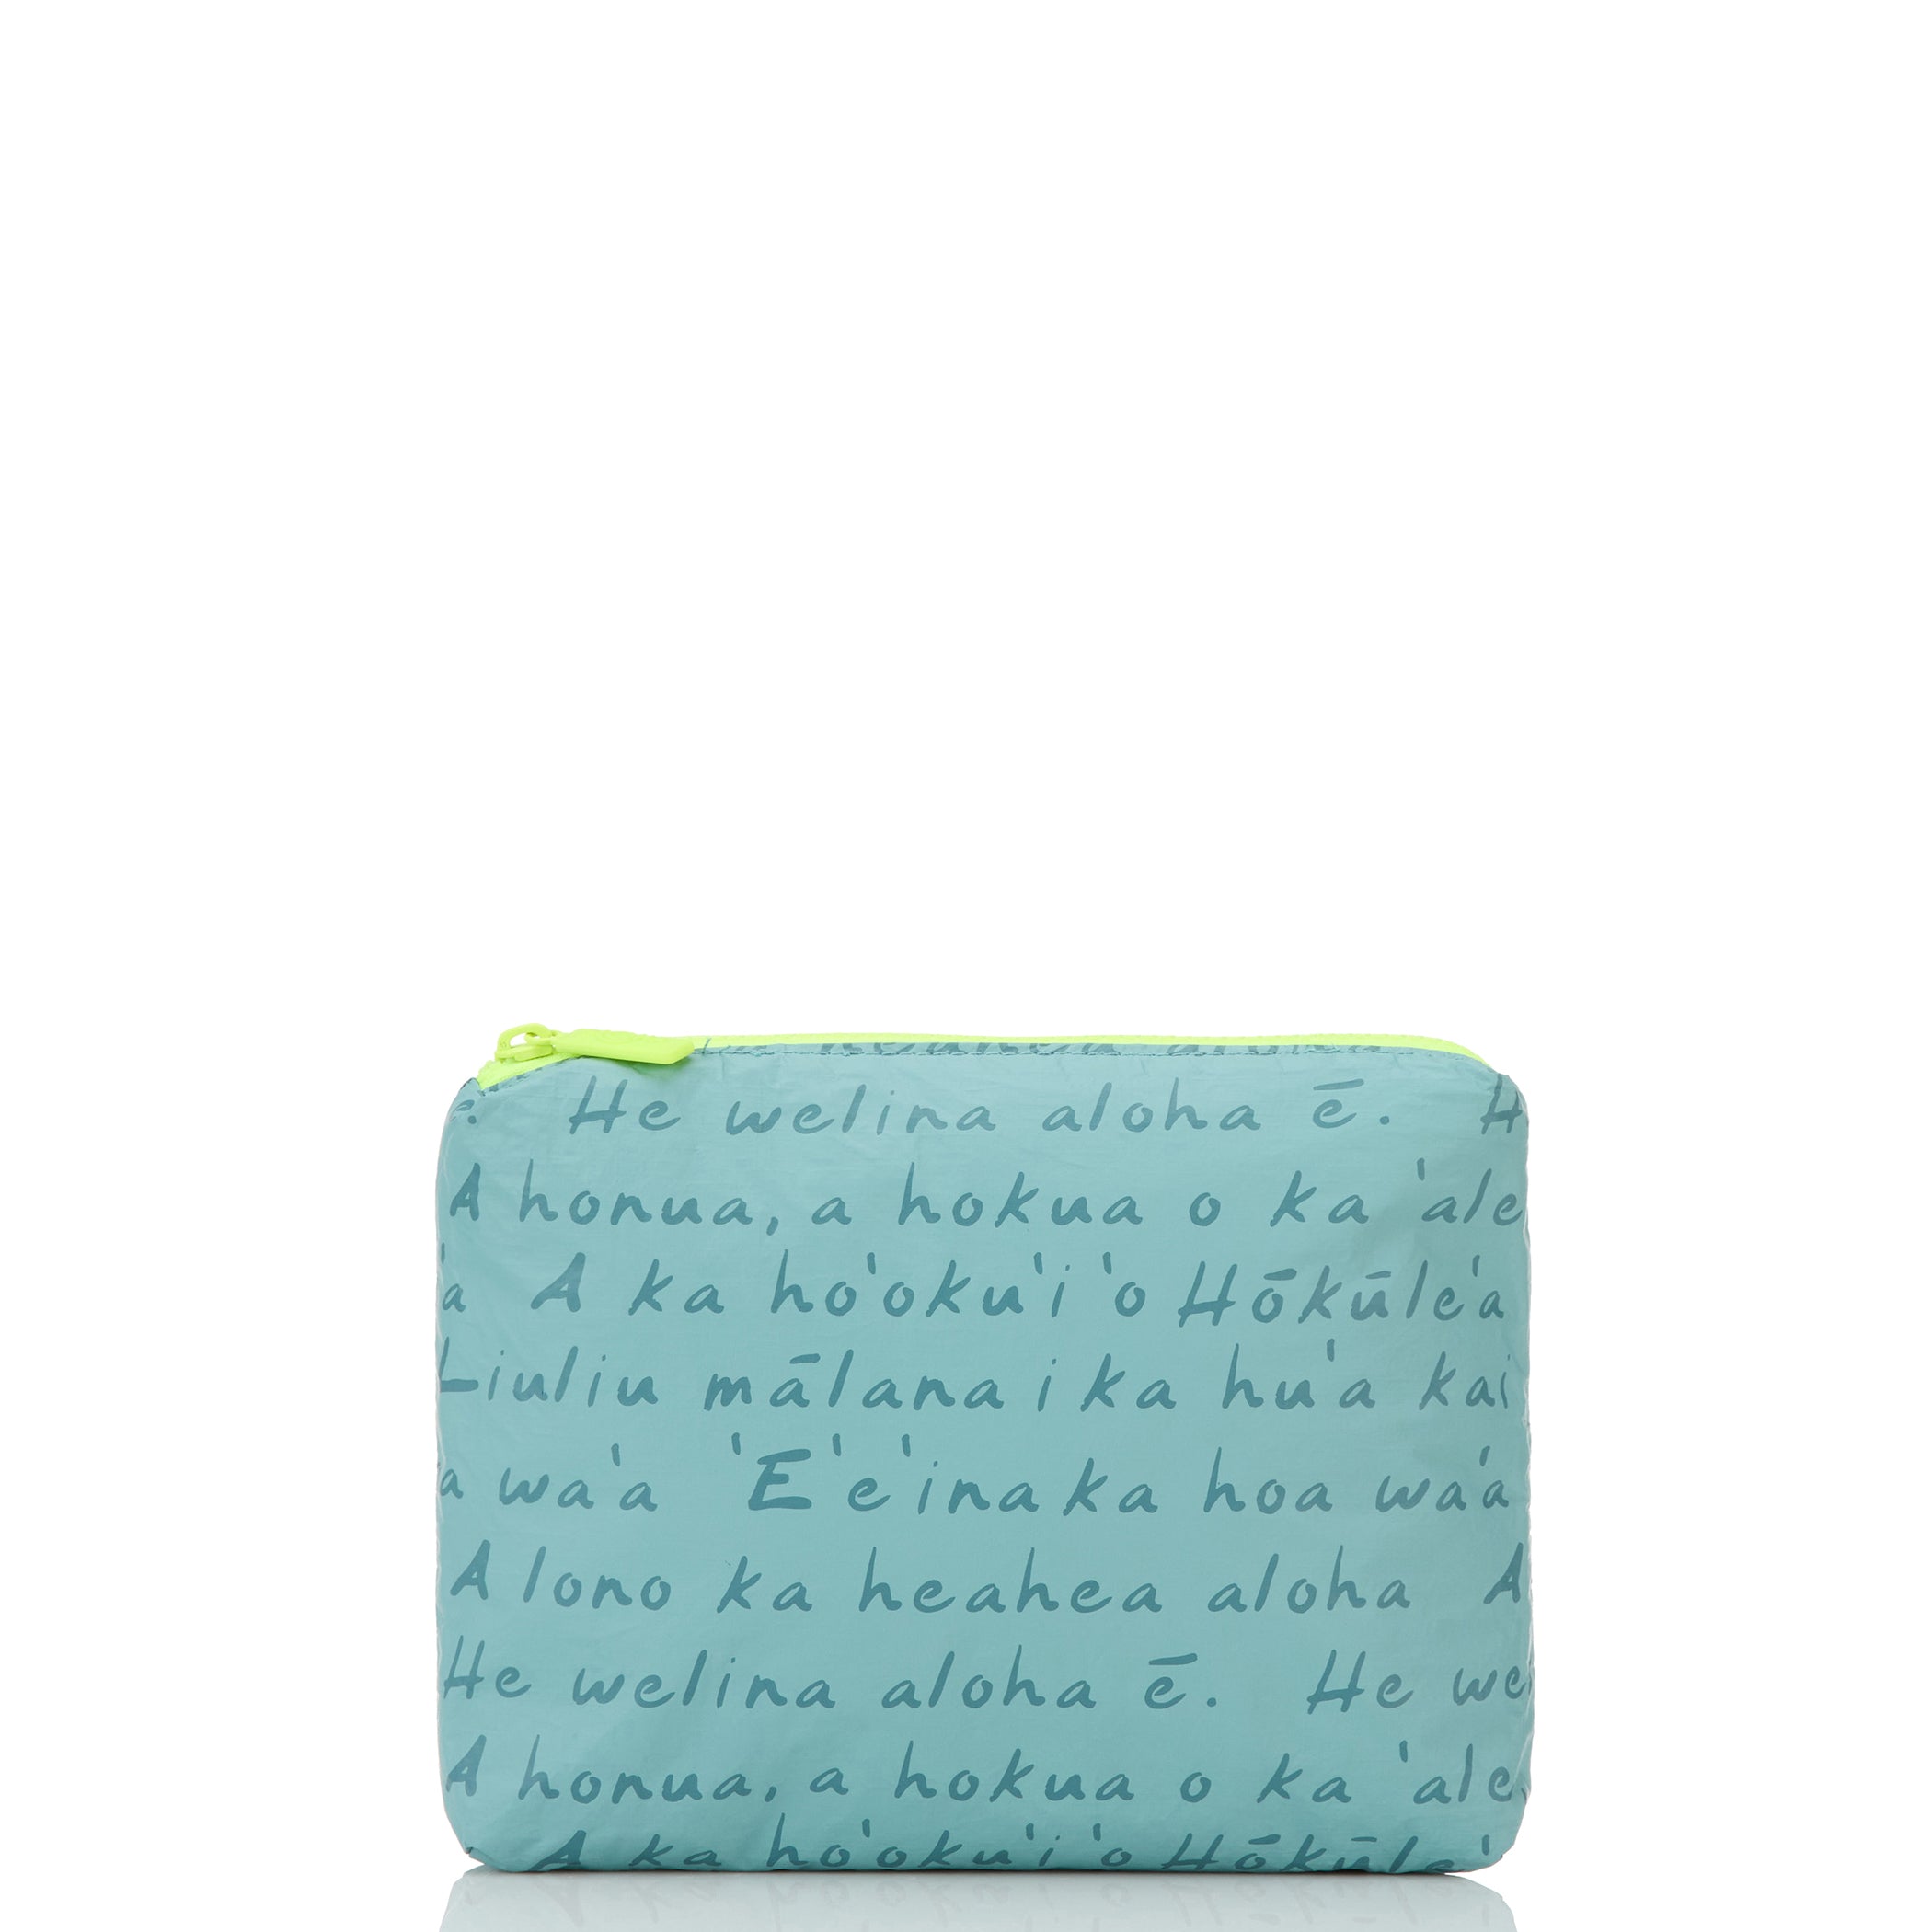 heahea aloha
e. He welina aloha ē. H
A honua, a hokua o ka 'ale
'a A ka ho'oku'i 'o Hōkūle'a
Liuliu mālana i ka hu'a kai
a wa'a 'E'e 'ina ka hoa wa'a
A lono ka heahea aloha A
He welina aloha ē. He we
A honua, a hokua o ka 'ale
A ka ho'oku'i 'o Hōkūle'